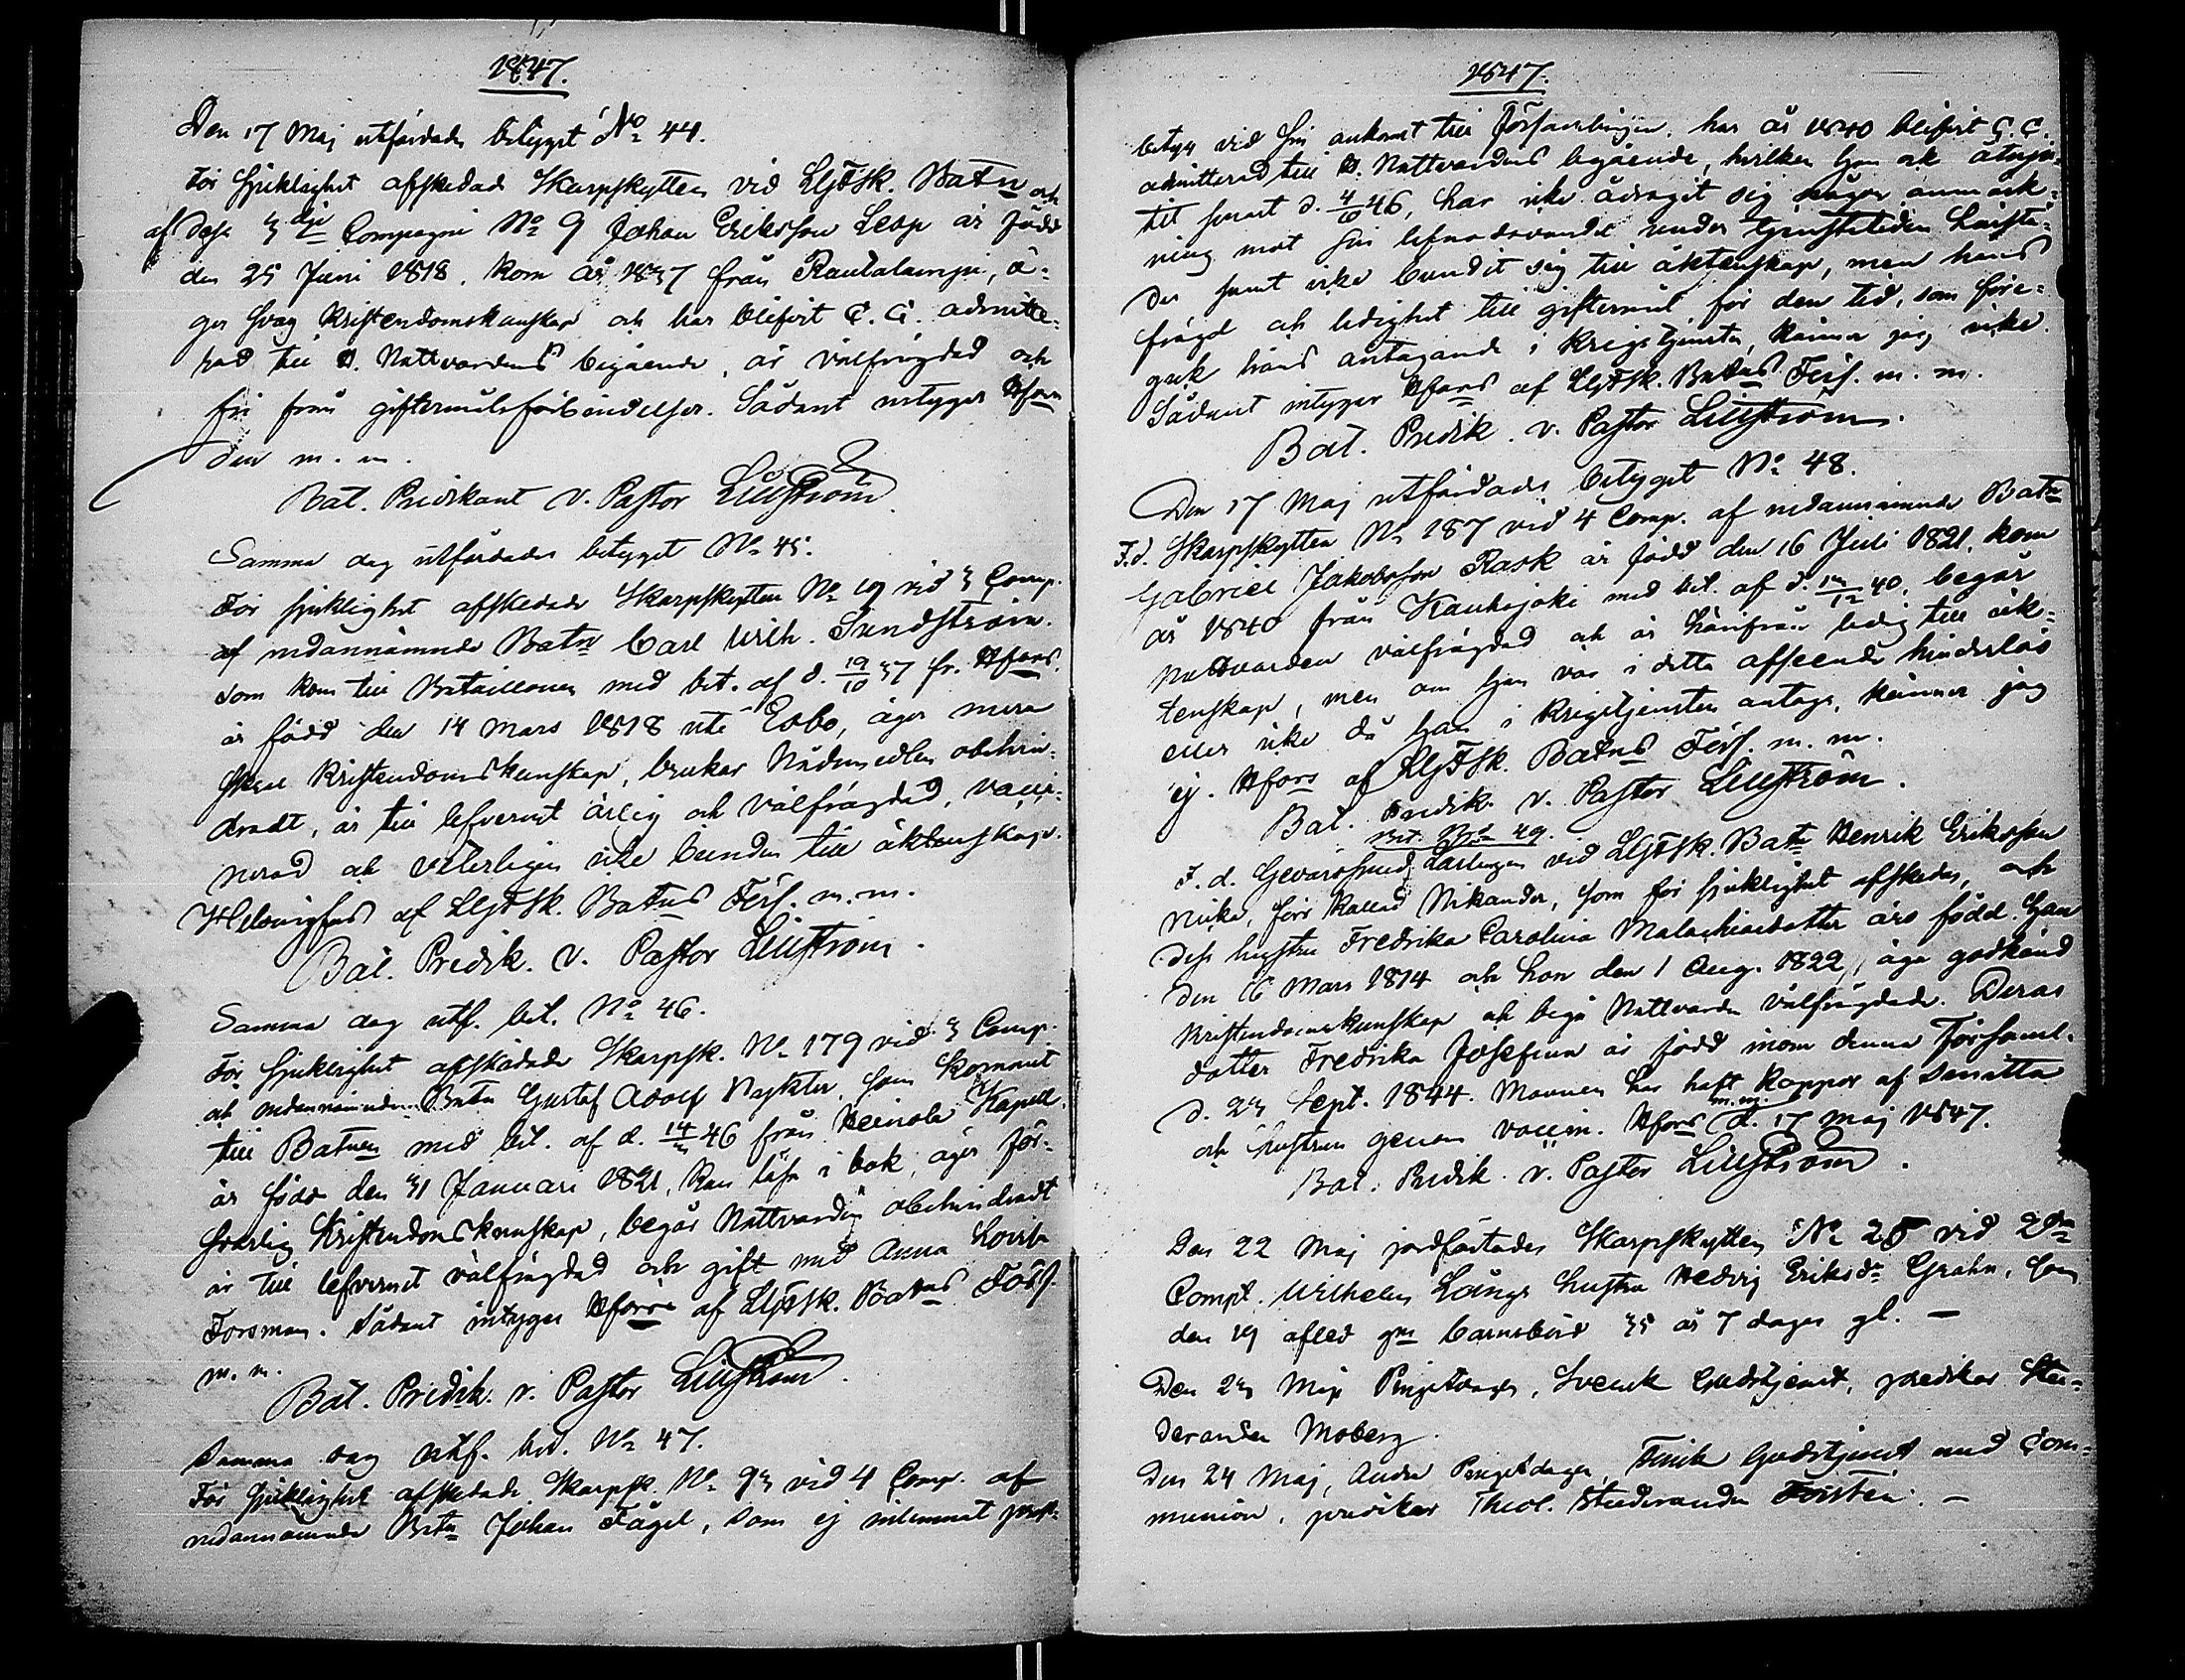 1847.
Den 17 Maj utfärdades betyget No 44.
För sjuklighet afskedade Skarpskytten vid LGFSk. Batn och
af dess 3dje Compagni No 9 Johan Eriksson Leop är född
den 25 Juni 1818. kom år 1837 från Rautalampi, ä-
ger svag Kristendomskunskap och har blifvit C. C. admitte-
rad till H. Nattvardens begående, är välfrägdad och
fri från giftermålsförbindelser. Sådant intygar Hfors
den m. m.
Bat. Predikant v. Pastor Lillström
Samma dag utfärdades betyget No 45.
För sjuklighet afskedade Skarpskytten No 19 vid 3 Comp.
af nedannämnde Batn Carl Wilh. Sundström.
som kom till Bataillonen med bet. af d. 19/10 37 fr. Hfors.
är född den 14 Mars 1818 uti Esbo, äger mera
Kristendomskunskap, brukar Nådemedlen obehin-
dradt, är till lefvernet ärlig och välfrägdad, vacci-
nerad och veterligen icke bunden till äktenskap.
Helsingfors af LGFSk. Batns Förs. m. m.
Bat. Predik. v. Pastor Lillström.
Samma dag utf. bet. No 46.
För sjuklighet afskedade Skarpsk. No 179 vid 3 Comp.
och nedannämnde Batn Gustaf Adolf som kommit
till Batnen med bet. af d. 14/3 46 från Heinola Kapell.
är född den 31 Januari 1821, kan läsa i bok, äger för-
svarlig Kristendomskunskap, begår Nattvarden obehindradt
är till lefvernet välfrägdad och gift med Anna Lovisa
Forsman. Sådant intygar Hfors af LGFSk. Batns Förs.
m. m.
Bat. Predik. v. Pastor Lillström.
Samma dag utf. bet. No 47.
För sjuklighet afskedade Skarpsk. No 93 vid 4 Comp. af
nedannämnde Batn Johan Fågel, som ej inlemnat prest-
1847.
betyg vid sin ankomst till Församlingen. har år 1840 blifvit C. C.
admitterad till H. Nattvardens begående, hvilken han ock åtnju-
tit senast d. 4/6 46, har icke ådragit sig någon anmärk-
ning mot sin lefnadsvandel under tjenstetiden härstä-
des samt icke bundit sig till äktenskap, men hans
frägd och ledighet till giftermål för den tid, som före-
gick hans antagande i Krigstjensten, känner jag icke.
Sådant intygar Hfors af LGFSk. Batns Förs. m. m.
Bat. Predik. v. Pastor Lillström.
Den 17 Maj utfärdades betyget No 48.
F.d. Skarpskytten No 187 vid 4 Comp. af nedannämnde Batn
Gabriel Jakobsson Rask är född den 16 Juli 1821. kom
år 1840 från Kauhajoki med bet. af d. 40. begår
Nattvarden välfrägdad och är härifrån ledig till äk-
tenskap, men om han var i detta afseende hinderlös
eller icke då han i Krigstjensten antogs, känner jag
ej. Hfors af LGFSk. Batns Förs. m. m.
Bat. Predik. v. Pastor Lillström.
Bet. No 49.
F. d. Gevärssmeds Lärlingen vid LGFSk. Batn Henrik Eriksson
förr kallad Nikander, som för sjuklighet afskedas, och
dess hustru Fredrika Carolina Malachiasdotter äro födde. han
den 16 Mars 1814 och hon den 1 Aug. 1822, äga godkänd
Kristendomskunskap och begå Nattvarden välfrägdade. Deras
dotter Fredrika Josefina är född inom denna Församl.
d. 23 Sept. 1844. Mannen har haft Koppor af
m.m.
och hustrun genom vaccin. Hfors d. 17 Maj 1847.
Bat. Predik. v. Pastor Lillström.
Den 22 Maj jordfästades Skarpskytten No 28 vid 2dra
Compt. Wilhelm Långs hustru Hedvig Eriksdr Grahn, som
den 19 afled gm barnsbörd 35 år 7 dagar gl. —
Den 23 Maj Pingstdagen, Svensk Gudstjenst, predikar Stu-
deranden Moberg.
Den 24 Maj, Andra Pingstdagen, Finsk Gudstjenst med Com-
munion, predikar Theol. Studeranden Forstén. —